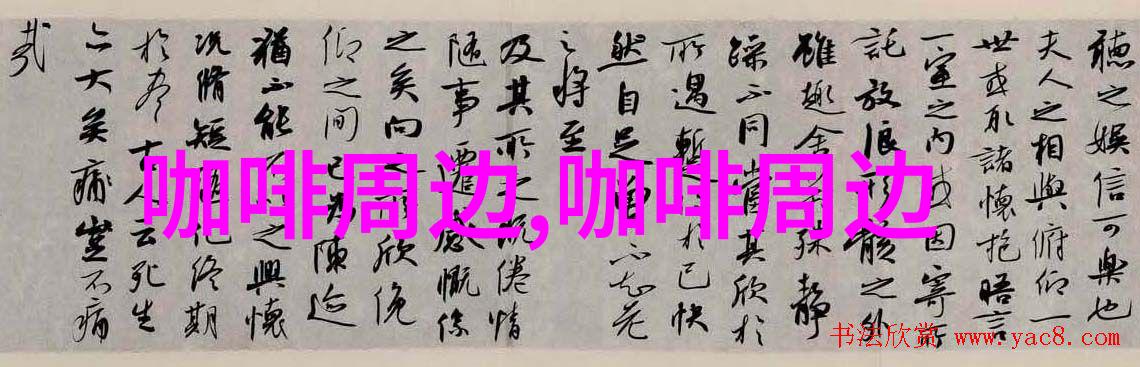 聽之娱信可樂也
夫人之相與俯仰一
世或取諸懷抱晤言
一室之内或因寄所
託放浪形骸之外
雖趣舍殊靜
躁不同當其欣於
所遇暫於己快
然自足不知老
之将至
及其所之既倦情
随事遷感慨係
之矣向之所欣俛
仰之間已为陳迹
猶不能之興懷
况脩短化终期
於盡人云死生
亦大矣豈不痛
哉
咖啡周边,咖啡周边
书法欣赏 www.yac8.com